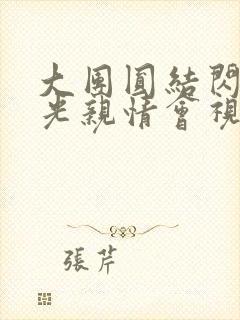 大團圓結閃
光親情會視
張芹